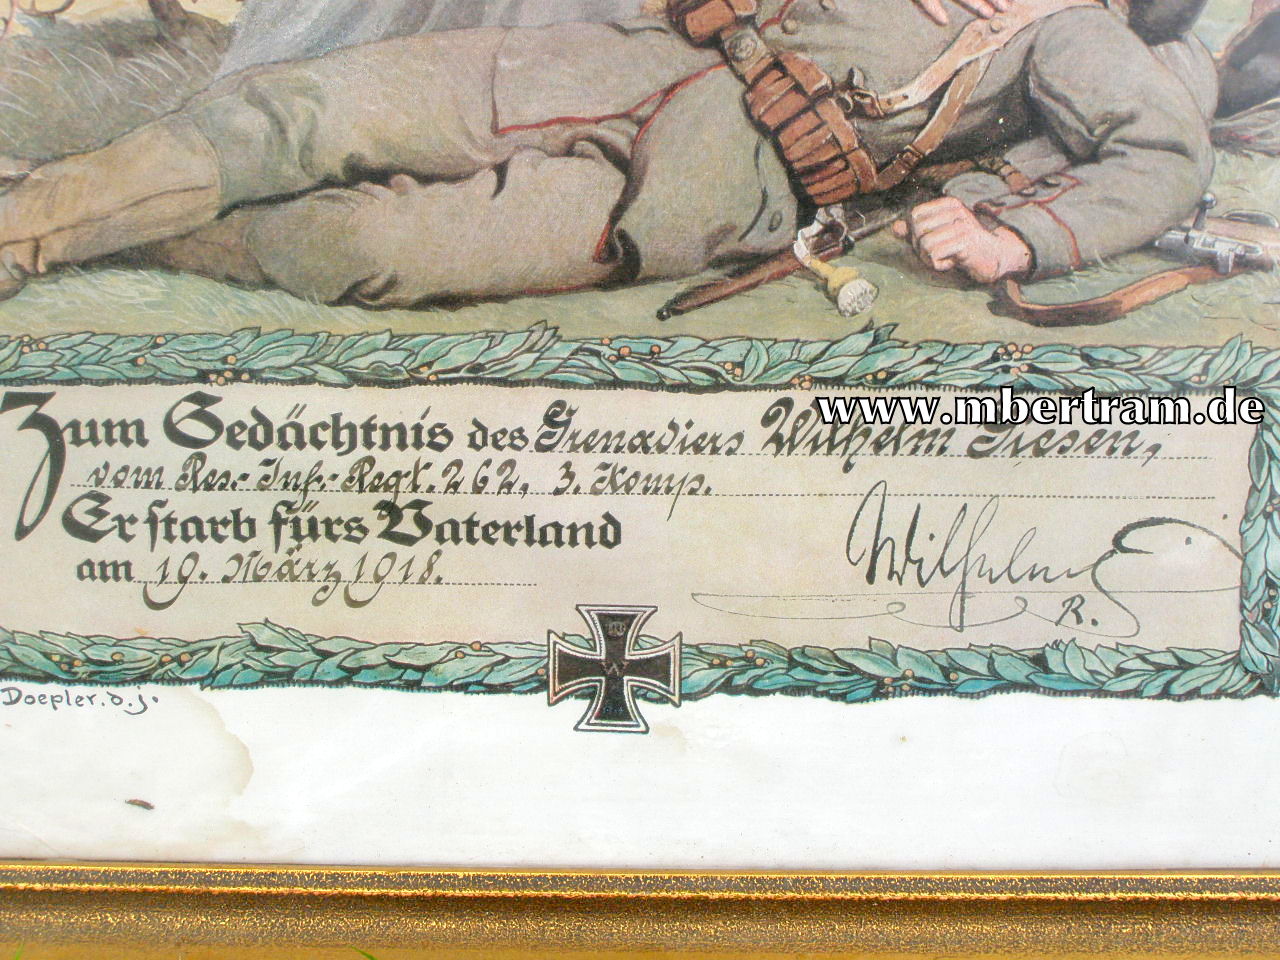 www.mbertram.de
Zum Gedächtnis des Grenadiers Wilhelm Tiesen,
vom Res.-Inf.-Regt. 262, 3. Komp.
Er starb fürs Vaterland
am 19. März 1918.
Wilhelm
R.
W
Doepler.d.j.